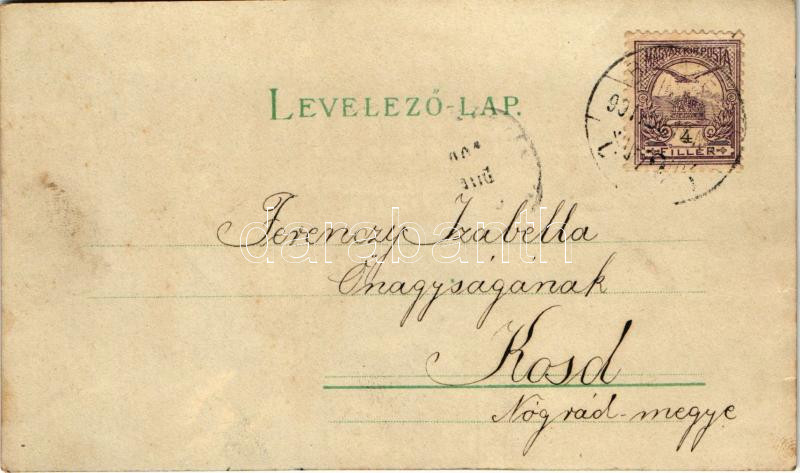 MAGYAR KIR. POSTA
4
FILLÉR
LEVELEZŐ-LAP.
Ferenczy Izabella
Őnagyságának
Kosd
Nógrád-megye
darabanth